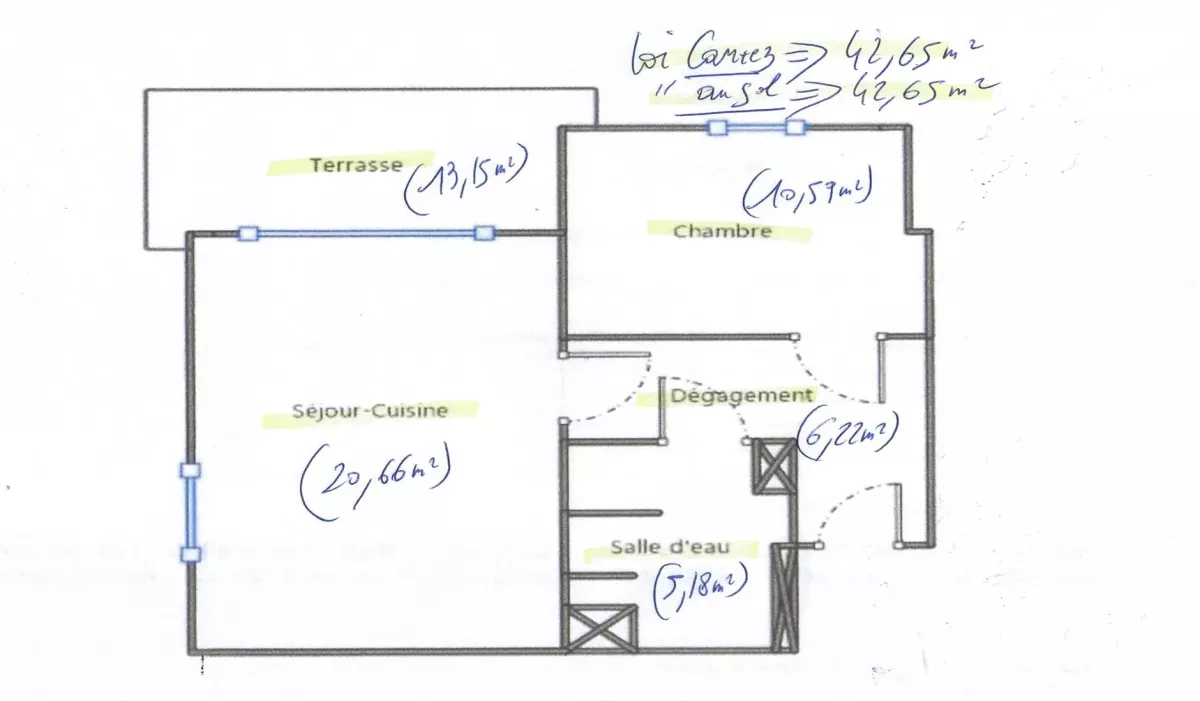 loi Carrez => 42,65m²
" au sol => 42,65m²
Terrasse (13,15m²)
(10,59m²)
Chambre
Dégagement
Séjour-Cuisine
(6,22m²)
(20,66m²)
Salle d'eau
(5,18m²)